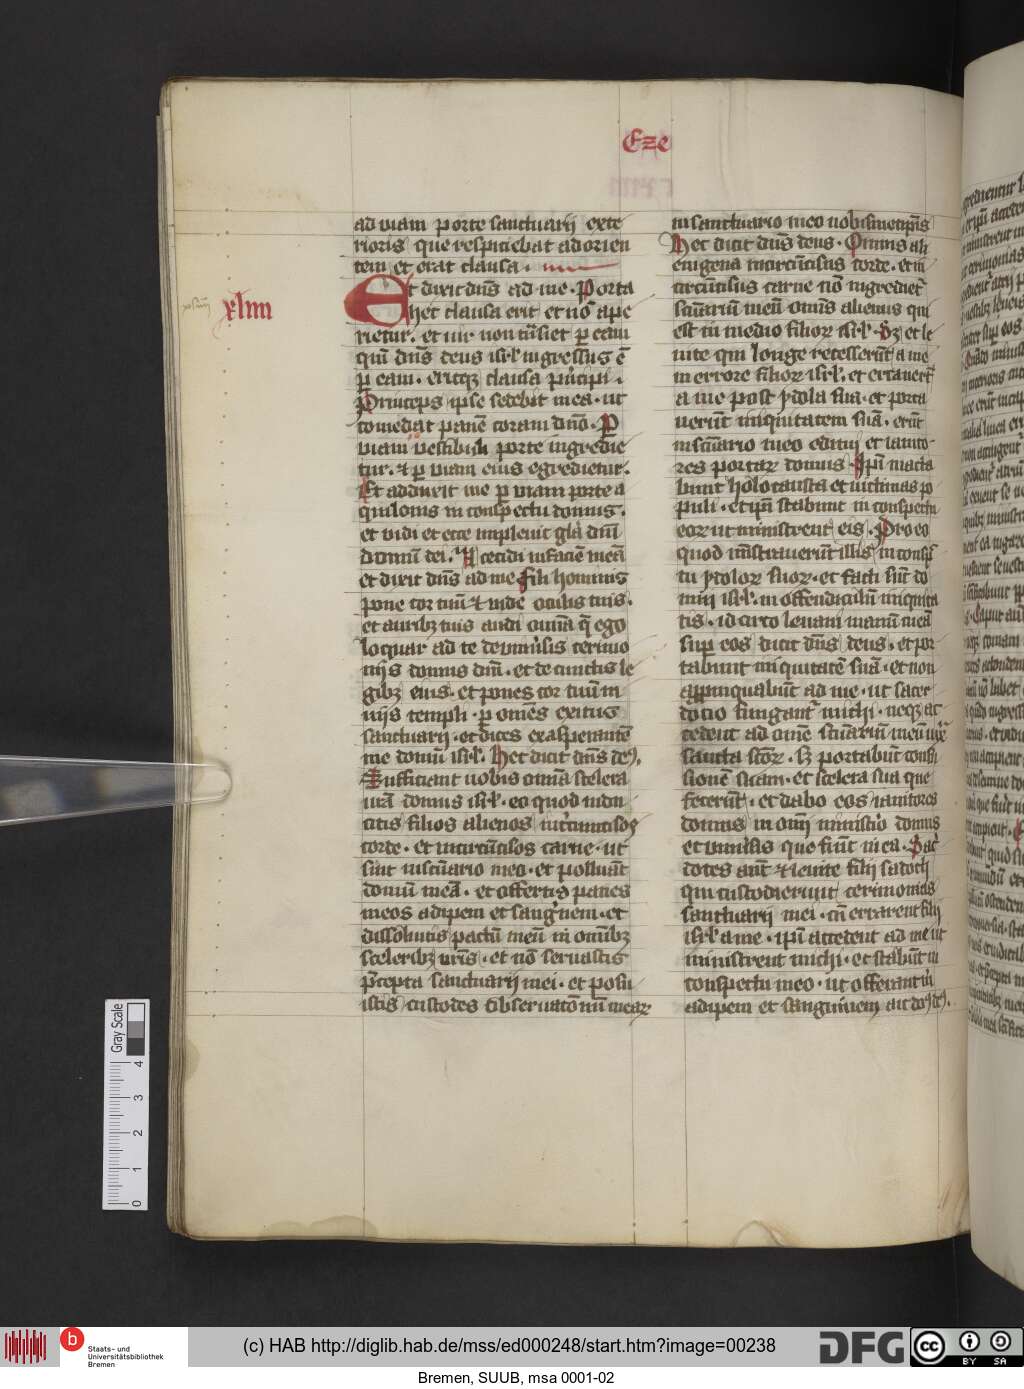 Eze
ad viam porte sanctuarij exte
rioris que respiciebat ad orien
tem et erat clausa.
xliiii
Et dixit dn̄s ad me. Porta
hec clausa erit et nō ape
rietur. et vir non trāsiet p eam
qm̄ dn̄s deus isrl ingressus ē
p eam. eritqz clausa pⁱncipi.
Princeps ipse sedebit in ea. ut
comedat panē coram dnō. P
viam vestibuli porte ingredie
tur. et p viam eius egredietur.
Et adduxit me p viam porte a
quilonis in conspectu domus.
et vidi et ecce implevit glā dn̄i
domū dei. Et cecidi in faciē meā
et dixit dn̄s ad me Fili hominis
pone cor tuū et vide oculis tuis.
et auribz tuis audi omīa q̄ ego
loquar ad te de vniūsis cerimo
niis domus dn̄i. et de cunctis le
gibz eius. et pones cor tuū in
viis templi. p omēs exitus
sanctuarij. et dices exasperantē
me domū isrl. Hec dicit dn̄s deus.
Sufficiant vobis omīa scelera
vrā domus isrl. eo quod indu
citis filios alienos incircumcisos
corde. et incircūcisos carne. ut
sint in scūario meo. et polluāt
domū meā. et offertis panes
meos adipem et sangūinem. et
dissoluitis pactū meū in omībz
sceleribz vrīs. et nō seruastis
p̄cepta sanctuarij mei. et posui
istis custodes obseruatōnū mearz
in sanctuario meo vobismetip̄is
Hec dicit dn̄s deus. Omnis ali
enigena incircūcisus corde. et in
circūcisus carne nō ingrediet̄
scūarium meū omīs alienus qui
est in medio filiorz isrl. Sz et le
uite qui longe recesserūt a me
in errore filiorz isrl. et errauerūt
a me post ydola sua. et porta
uerūt iniquitatem suā. erūt
in scūario meo editui et ianito
res portarz domus. Ip̄i macta
bunt holocausta et victimas po
puli. et ip̄i stabunt in conspectu
eorz ut ministrent eis. Pro eo
quod ministrauerūt illis in conspec
tu ydolorz suorz. et facti sūt do
mui isrl. in offendiculū iniquita
tis. idcirco leuaui manū meā
sup eos dicit dn̄s deus. et por
tabunt iniquitatē suā. et non
appinquabūt ad me. ut sacer
docio fungant̄ michi. neqz ac
cedent ad omē scūariū meū iuxta
sancta scōrz. Sz portabūt confu
sionē suam. et scelera sua que
fecerūt. et dabo eos ianitores
domus in omī ministerio domus
et vniūsis que fiūt in ea. Sacer
dotes aūt et leuite filij sadoch
qui custodierunt cerimonias
sanctuarij mei. cū errarent filij
isrl a me. ip̄i accedent ad me ut
ministrent michi. et stabunt in
conspectu meo. ut offerant michi
adipem et sanguinem ait dn̄s deus.
Gray Scale
0 1 2 3 4
Staats- und
Universitätsbibliothek
Bremen
(c) HAB http://diglib.hab.de/mss/ed000248/start.htm?image=00238
DFG
CC BY SA
Bremen, SUUB, msa 0001-02